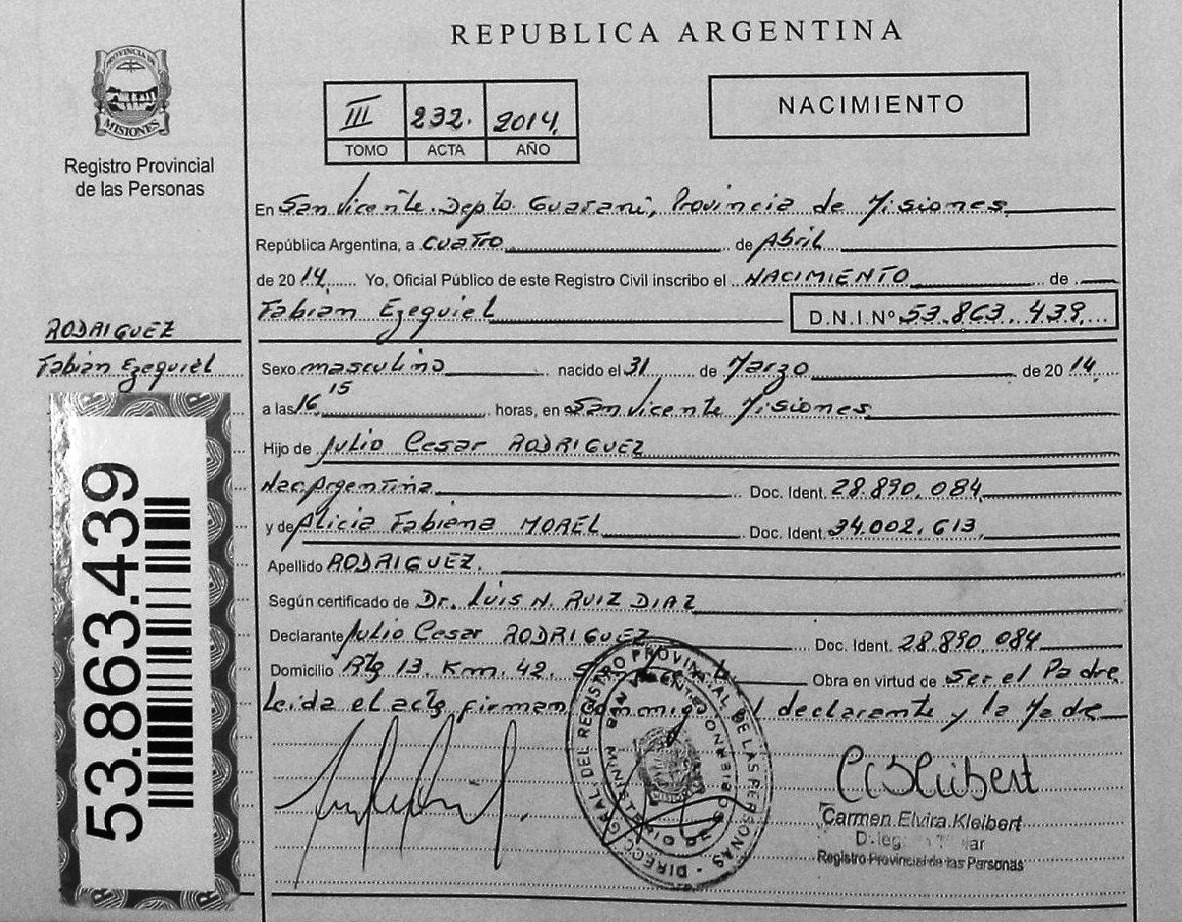 REPUBLICA ARGENTINA
PROVINCIA DE
MISIONES
Registro Provincial
de las Personas
III 232. 2014
TOMO ACTA AÑO
NACIMIENTO
En San Vicente. Depto. Guarani, Provincia de Misiones
República Argentina, a cuatro de Abril
de 2014 Yo, Oficial Público de este Registro Civil inscribo el NACIMIENTO de
Fabian Ezequiel D.N.I.Nº 53.863.439
RODRIGUEZ
Fabian Ezequiel
Sexo masculino nacido el 31 de Marzo de 2014
a las 16 15 horas, en San Vicente Misiones
Hijo de Julio Cesar RODRIGUEZ
Nac. Argentina Doc. Ident. 28.890.084
y de Alicia Fabiana MOREL Doc. Ident. 34.002.613
Apellido RODRIGUEZ.
Según certificado de Dr. LUIS N. RUIZ DIAZ
Declarante Julio Cesar RODRIGUEZ Doc. Ident. 28.890.084
Domicilio Rta 13. Km. 42. Obra en virtud de Ser el Padre
Leida el acta firman declarante y la Madre
53.863.439
DIRECC GRAL DEL REGISTRO PROVINCIAL DE LAS PERSONAS
MINISTERIO DE GOBIERNO
SAN VICENTE
Carmen Elvira Kleibert
Registro Provincial de las Personas